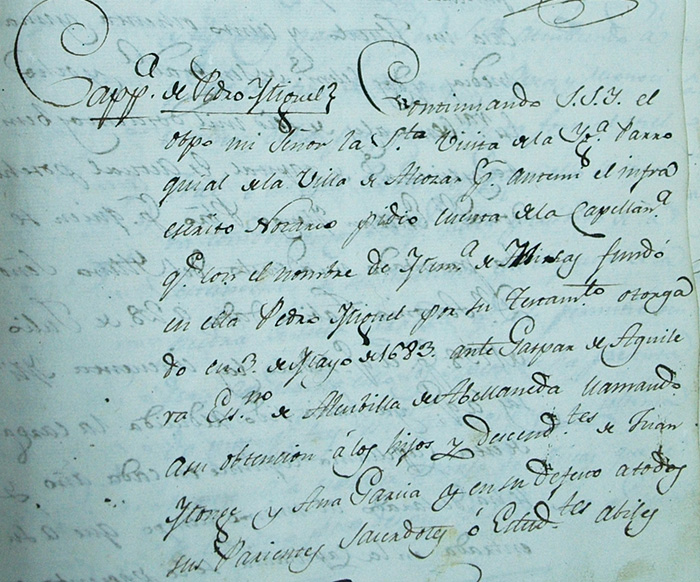 Capp.ª de Pedro Miguel Continuando S.S.Y. el
obpo mi Señor la S.ta Visita de la Yg.ª Parro
quial de la Villa de Alcozar p.r antemi el infra
escrito Notario pidio cuenta de la Capellan.ª
q.e con el nombre de Mem.ª de Misas fundó
en ella Pedro Miguel por su testam.to otorga
do en 3. de Mayo de 1683. ante Gaspar de Aguile
ra Ess.no de Alcubilla de Abellaneda llamando
a su obtencion à los hijos y descend.tes de Juan
Monge y Ana Garcia y en su defecto a todos
sus Parientes Sacerdotes ó Estud.tes abiles